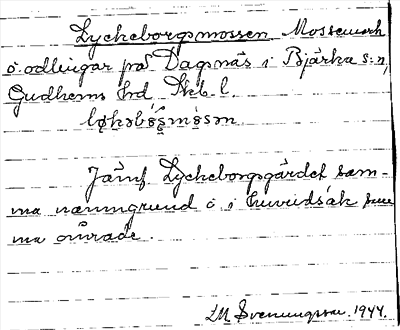 Lyckeborgsmossen Mossemark
o. odlingar på Dagsnäs i Bjärka s:n,
Gudhems hrd Skb. l.
Jämf. Lyckeborgsgärdet sam-
ma namngrund o. i huvudsak sam
ma område.
LM Svenungsson 1944.